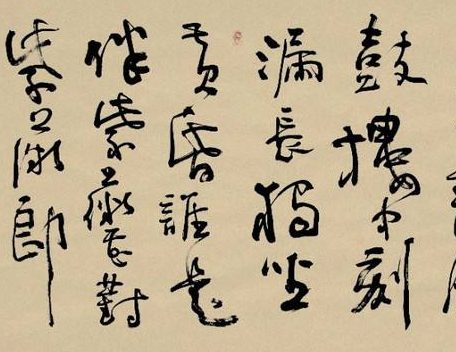 鼓樓中刻
漏長獨坐
黃昏誰是
伴紫薇花對
紫微郎